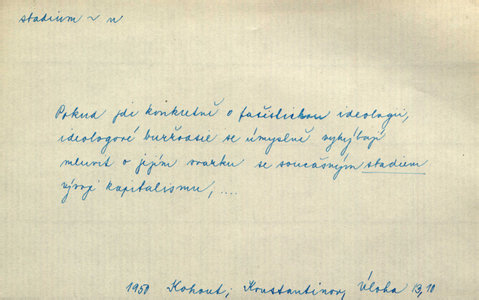 stadium ~ n
Pokud jde konkretně o fašistickou ideologii,
ideologové buržoasie se úmyslně vyhýbají
mluvit o jejím svazku se současným stadiem
vývoje kapitalismu, ....
1950 Kohout; Konstantinov, Úloha 13, 10